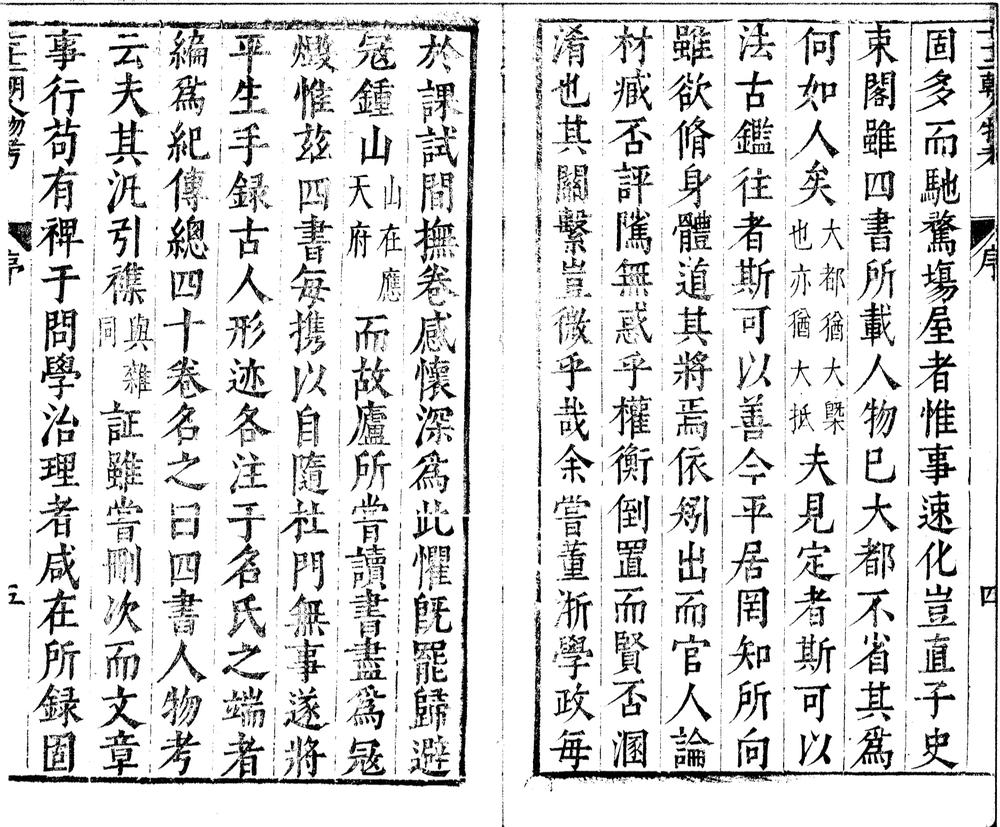 固多而馳騖場屋者惟事速化豈直子史
束閣雖四書所載人物已大都不省其為
何如人矣大都猶大槩也亦猶大抵夫見定者斯可以
法古鑑往者斯可以善今平居罔知所向
雖欲脩身體道其將焉依矧出而官人論
材臧否評隲無惑乎權衡倒置而賢否溷
淆也其關繫豈微乎哉余嘗董浙學政每
於課試間撫卷感懷深為此懼旣罷歸避
冦鍾山山在應天府而故廬所嘗讀書盡為冦
燬惟茲四書每携以自隨杜門無事遂將
平生手録古人形迹各注于名氏之端者
編爲紀傳總四十卷名之曰四書人物考
云夫其汎引襍與雜同証雖嘗刪次而文章
事行苟有裨于問學治理者咸在所録固
序
四
人物考
序
五